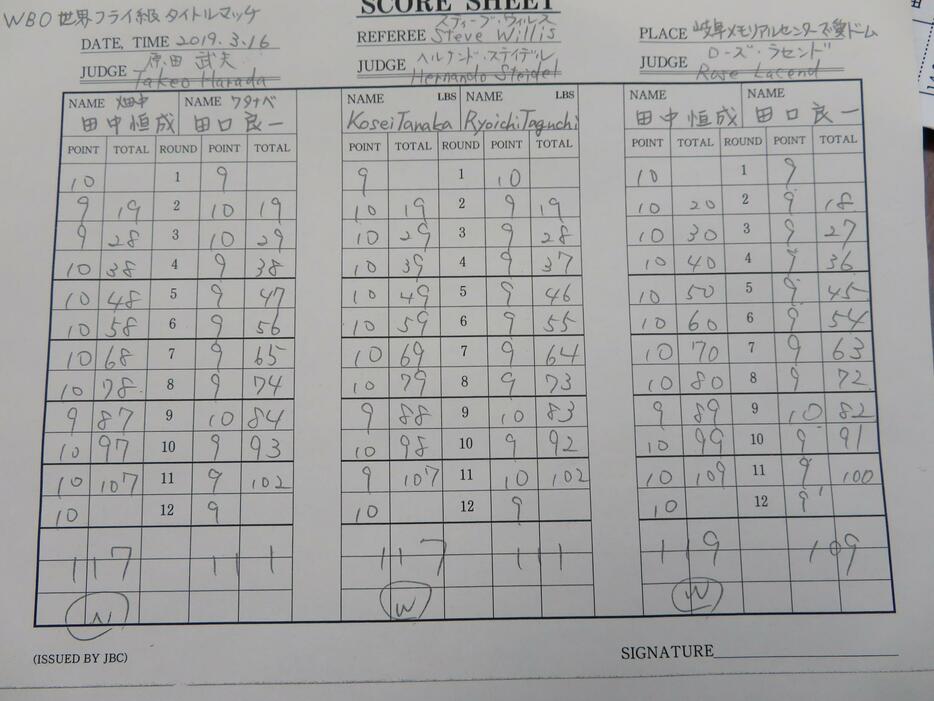 SCORE SHEET
WBO世界フライ級タイトルマッチ
DATE, TIME 2019.3.16
スティーブ・ウィルス
REFEREE Steve Willis
PLACE 岐阜メモリアルセンターで愛ドーム
原田 武夫
JUDGE Takeo Harada
ヘルナンド・ステイデル
JUDGE Hernando Steidel
ローズ・ラセンド
JUDGE Rose Lacend
NAME 畑中 NAME ワタナベ
田中恒成 田口良一
NAME LBS NAME LBS
Kosei Tanaka Ryoichi Taguchi
NAME NAME
田中恒成 田口良一
POINT TOTAL ROUND POINT TOTAL POINT TOTAL ROUND POINT TOTAL POINT TOTAL ROUND POINT TOTAL
10 1 9 9 1 10 10 1 9
9 19 2 10 19 10 19 2 9 19 10 20 2 9 18
9 28 3 10 29 10 29 3 9 28 10 30 3 9 27
10 38 4 9 38 10 39 4 9 37 10 40 4 9 36
10 48 5 9 47 10 49 5 9 46 10 50 5 9 45
10 58 6 9 56 10 59 6 9 55 10 60 6 9 54
10 68 7 9 65 10 69 7 9 64 10 70 7 9 63
10 78 8 9 74 10 79 8 9 73 10 80 8 9 72
9 87 9 10 84 9 88 9 10 83 9 89 9 10 82
10 97 10 9 93 10 98 10 9 92 10 99 10 9 91
10 107 11 9 102 9 107 11 10 102 10 109 11 9 100
10 12 9 10 12 9 10 12 9
117 111 117 111 119 109
W W W
(ISSUED BY JBC)
SIGNATURE